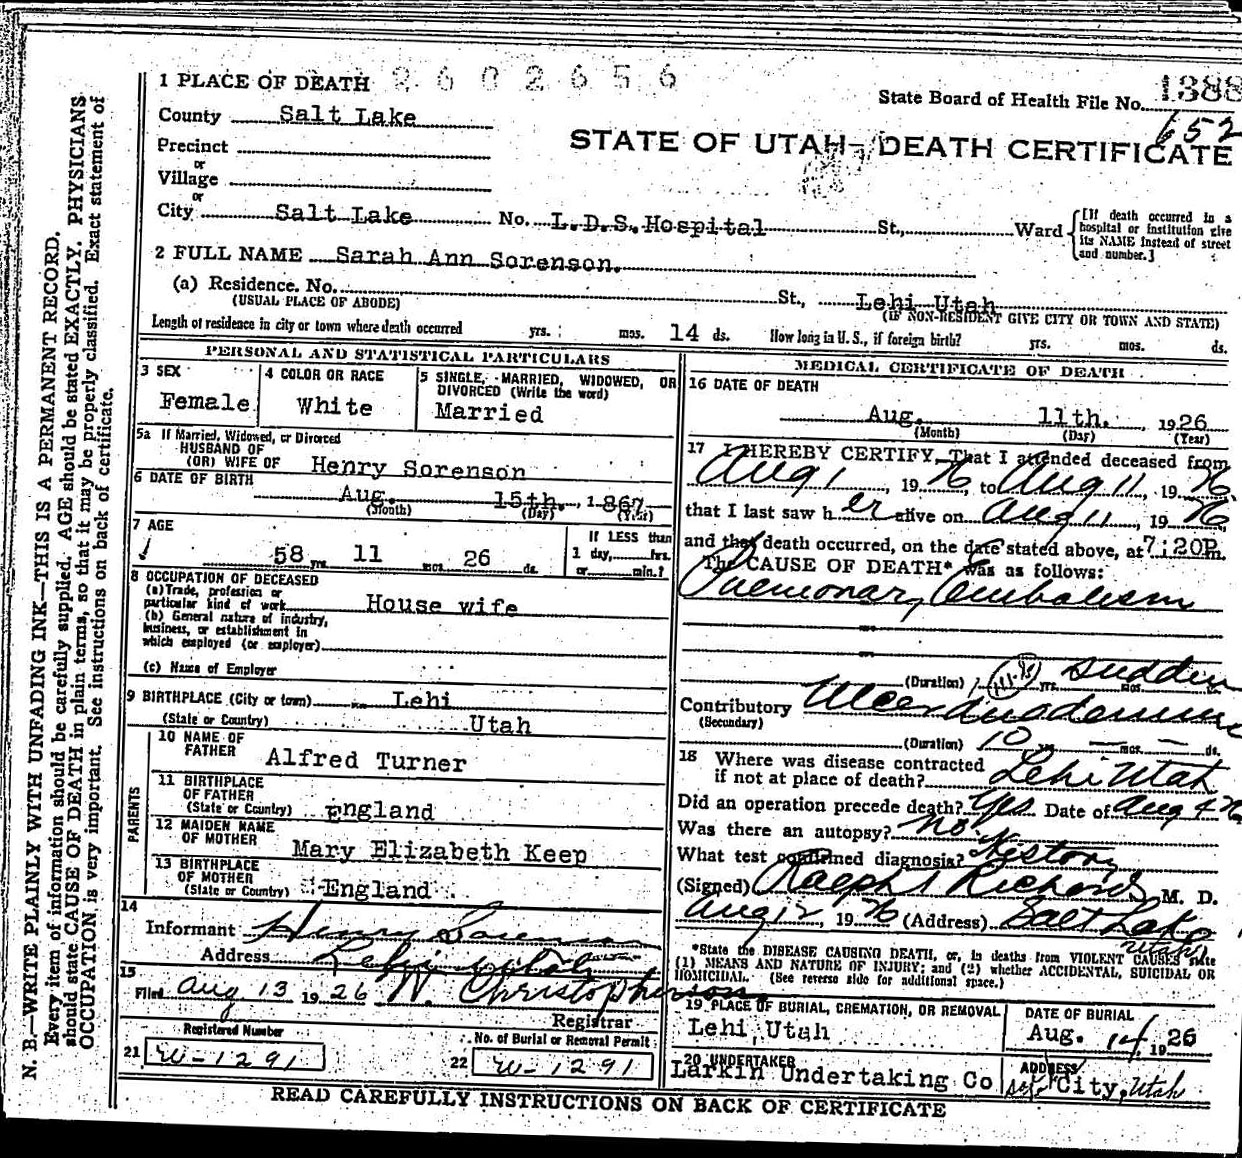 1 PLACE OF DEATH 2602656
State Board of Health File No. 1388
652
County Salt Lake
STATE OF UTAH—DEATH CERTIFICATE
Precinct
or
Village
or
City Salt Lake No. L.D.S. Hospital St., Ward
[If death occurred in a hospital or institution give its NAME instead of street and number.]
2 FULL NAME Sarah Ann Sorenson.
(a) Residence. No. St., Lehi Utah
(USUAL PLACE OF ABODE) (IF NON-RESIDENT GIVE CITY OR TOWN AND STATE)
Length of residence in city or town where death occurred yrs. mos. 14 ds. How long in U. S., if foreign birth? yrs. mos. ds.
PERSONAL AND STATISTICAL PARTICULARS
3 SEX
Female
4 COLOR OR RACE
White
5 SINGLE, MARRIED, WIDOWED, OR
DIVORCED (Write the word)
Married
5a If Married, Widowed, or Divorced
HUSBAND OF
(OR) WIFE OF Henry Sorenson
6 DATE OF BIRTH
Aug. 15th. 1867
(Month) (Day) (Year)
7 AGE
58 yrs 11 mos. 26 ds.
If LESS than
1 day, hrs.
or min.?
8 OCCUPATION OF DECEASED
(a) Trade, profession or
particular kind of work House wife
(b) General nature of industry,
business, or establishment in
which employed (or employer)
(c) Name of Employer
9 BIRTHPLACE (City or town) Lehi
(State or Country) Utah
PARENTS
10 NAME OF
FATHER Alfred Turner
11 BIRTHPLACE
OF FATHER
(State or Country) England
12 MAIDEN NAME
OF MOTHER Mary Elizabeth Keep
13 BIRTHPLACE
OF MOTHER
(State or Country) England
14
Informant Henry Sorenson
Address Lehi Utah
15
Filed Aug 13 1926 W. Christopherson
Registrar
Registered Number
21 W-1291
No. of Burial or Removal Permit
22 W-1291
MEDICAL CERTIFICATE OF DEATH
16 DATE OF DEATH
Aug. 11th. 1926
(Month) (Day) (Year)
17 I HEREBY CERTIFY, That I attended deceased from
Aug 1, 1926, to Aug 11, 1926,
that I last saw her alive on Aug 11, 1926,
and that death occurred, on the date stated above, at 7:20P.m.
The CAUSE OF DEATH* was as follows:
Pulmonary Embolism
(Duration) yrs. mos. Sudden
Contributory Ulcer duodenum
(Secondary)
(Duration) 10 yrs. — mos. — ds.
18 Where was disease contracted
if not at place of death? Lehi Utah
Did an operation precede death? Yes Date of Aug 4 26
Was there an autopsy? No.
What test confirmed diagnosis? History
(Signed) Ralph Richards M. D.
Aug 12, 1926 (Address) Salt Lake
Utah
*State the DISEASE CAUSING DEATH, or, in deaths from VIOLENT CAUSES state
(1) MEANS AND NATURE OF INJURY; and (2) whether ACCIDENTAL, SUICIDAL OR
HOMICIDAL. (See reverse side for additional space.)
19 PLACE OF BURIAL, CREMATION, OR REMOVAL
Lehi, Utah
DATE OF BURIAL
Aug. 14, 1926
20 UNDERTAKER
Larkin Undertaking Co
ADDRESS
City, Utah
READ CAREFULLY INSTRUCTIONS ON BACK OF CERTIFICATE
N. B.—WRITE PLAINLY WITH UNFADING INK—THIS IS A PERMANENT RECORD.
Every item of information should be carefully supplied. AGE should be stated EXACTLY. PHYSICIANS
should state CAUSE OF DEATH in plain terms, so that it may be properly classified. Exact statement of
OCCUPATION is very important. See instructions on back of certificate.